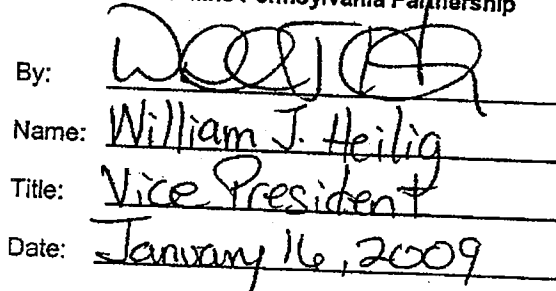 Pennsylvania Partnership
By:
Name: William J. Heilig
Title: Vice President
Date: January 16, 2009